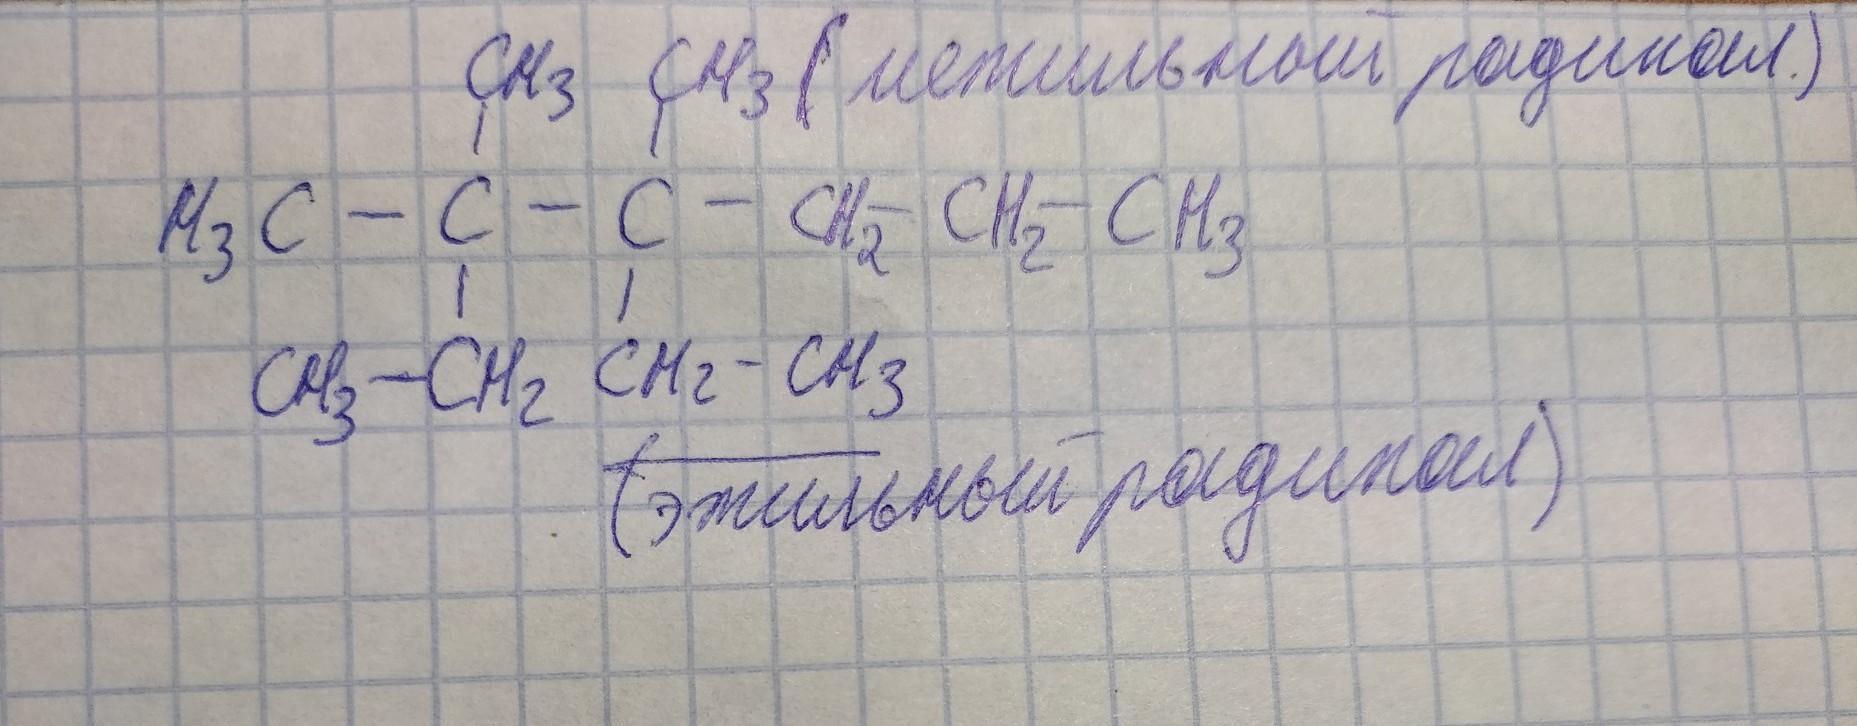 CH3 CH3 (метильный радикал.)
H3C - C - C - CH2- CH2- CH3
CH3-CH2 CH2-CH3
(этильный радикал)